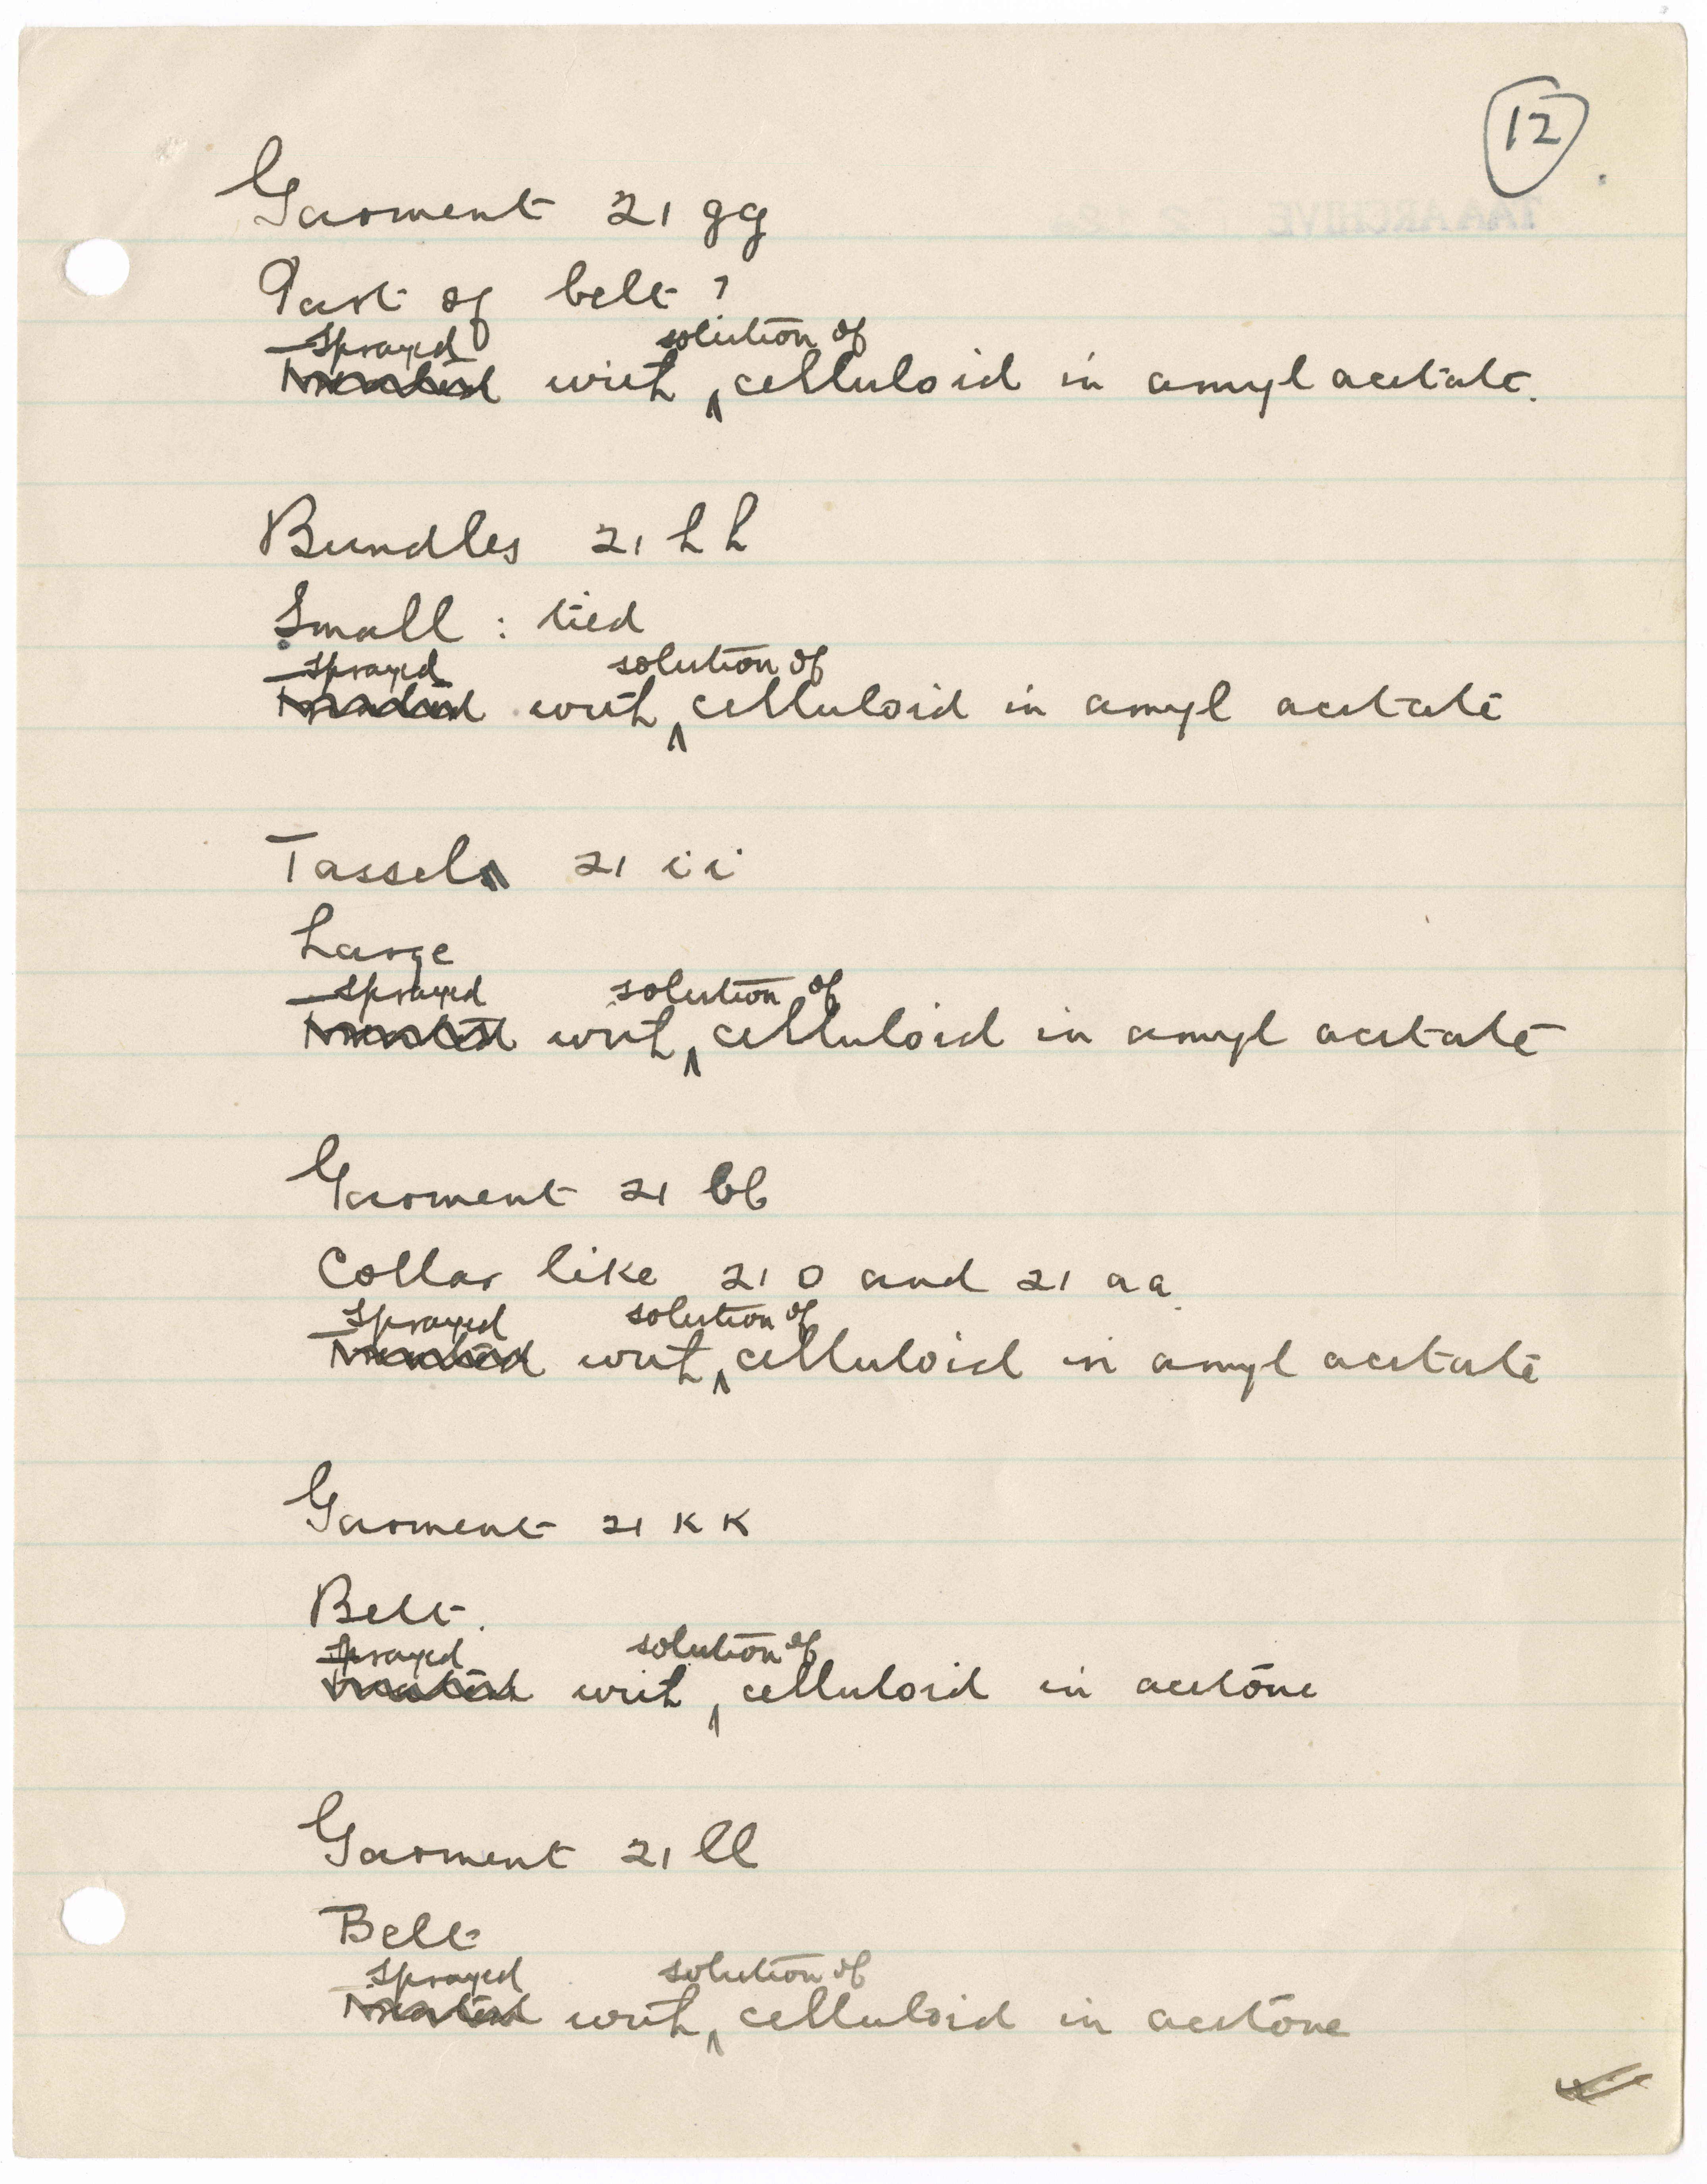 12
Garment 21 gg
Part of belt?
sprayed solution of
treated with ∧ celluloid in amyl acetate.
Bundles 21 hh
Small : tied
sprayed solution of
treated with ∧ celluloid in amyl acetate
Tassel 21 ii
Large
sprayed solution of
treated with ∧ celluloid in amyl acetate
Garment 21 bb
Collar like 21 o and 21 aa
sprayed solution of
treated with ∧ celluloid in amyl acetate
Garment 21 KK
Belt.
sprayed solution of
treated with ∧ celluloid in acetone
Garment 21 ll
Belt
sprayed solution of
treated with ∧ celluloid in acetone